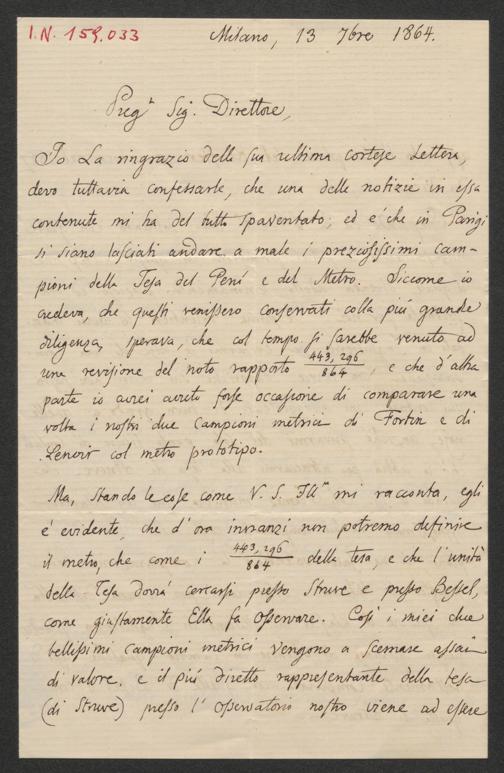 I.N. 159.033
Milano, 13 7bre 1864.
Preg.^e Sig. Direttore,
Io La ringrazio della sua ultima cortese lettera,
devo tuttavia confessarle, che una delle notizie in essa
contenute mi ha del tutto spaventato; ed é che in Parigi
si siano lasciati andare a male i preziosissimi cam-
pioni della Tesa del Perú e del Metro. Siccome io
credeva, che questi venissero conservati colla piú grande
diligenza, sperava, che col tempo si sarebbe venuto ad
una revisione del noto rapporto 443,296/864, e che d'altra
parte io avrei avuto forse occasione di comparare una
volta i nostri due Campioni metrici di Fortin e di
Lenoir col metro prototipo.
Ma, stando le cose come V. S. Ill^ma mi racconta, egli
é evidente, che d'ora innanzi non potremo definire
il metro, che come i 443,296/864 della tesa, e che l'unitá
della Tesa dovrá cercarsi presso Struve e presso Bessel,
come giustamente Ella fa osservare. Cosí i miei due
bellissimi campioni metrici vengono a scemare assai
di valore, e il piú diretto rappresentante della tesa
(di Struve) presso l'Osservatorio nostro viene ad essere